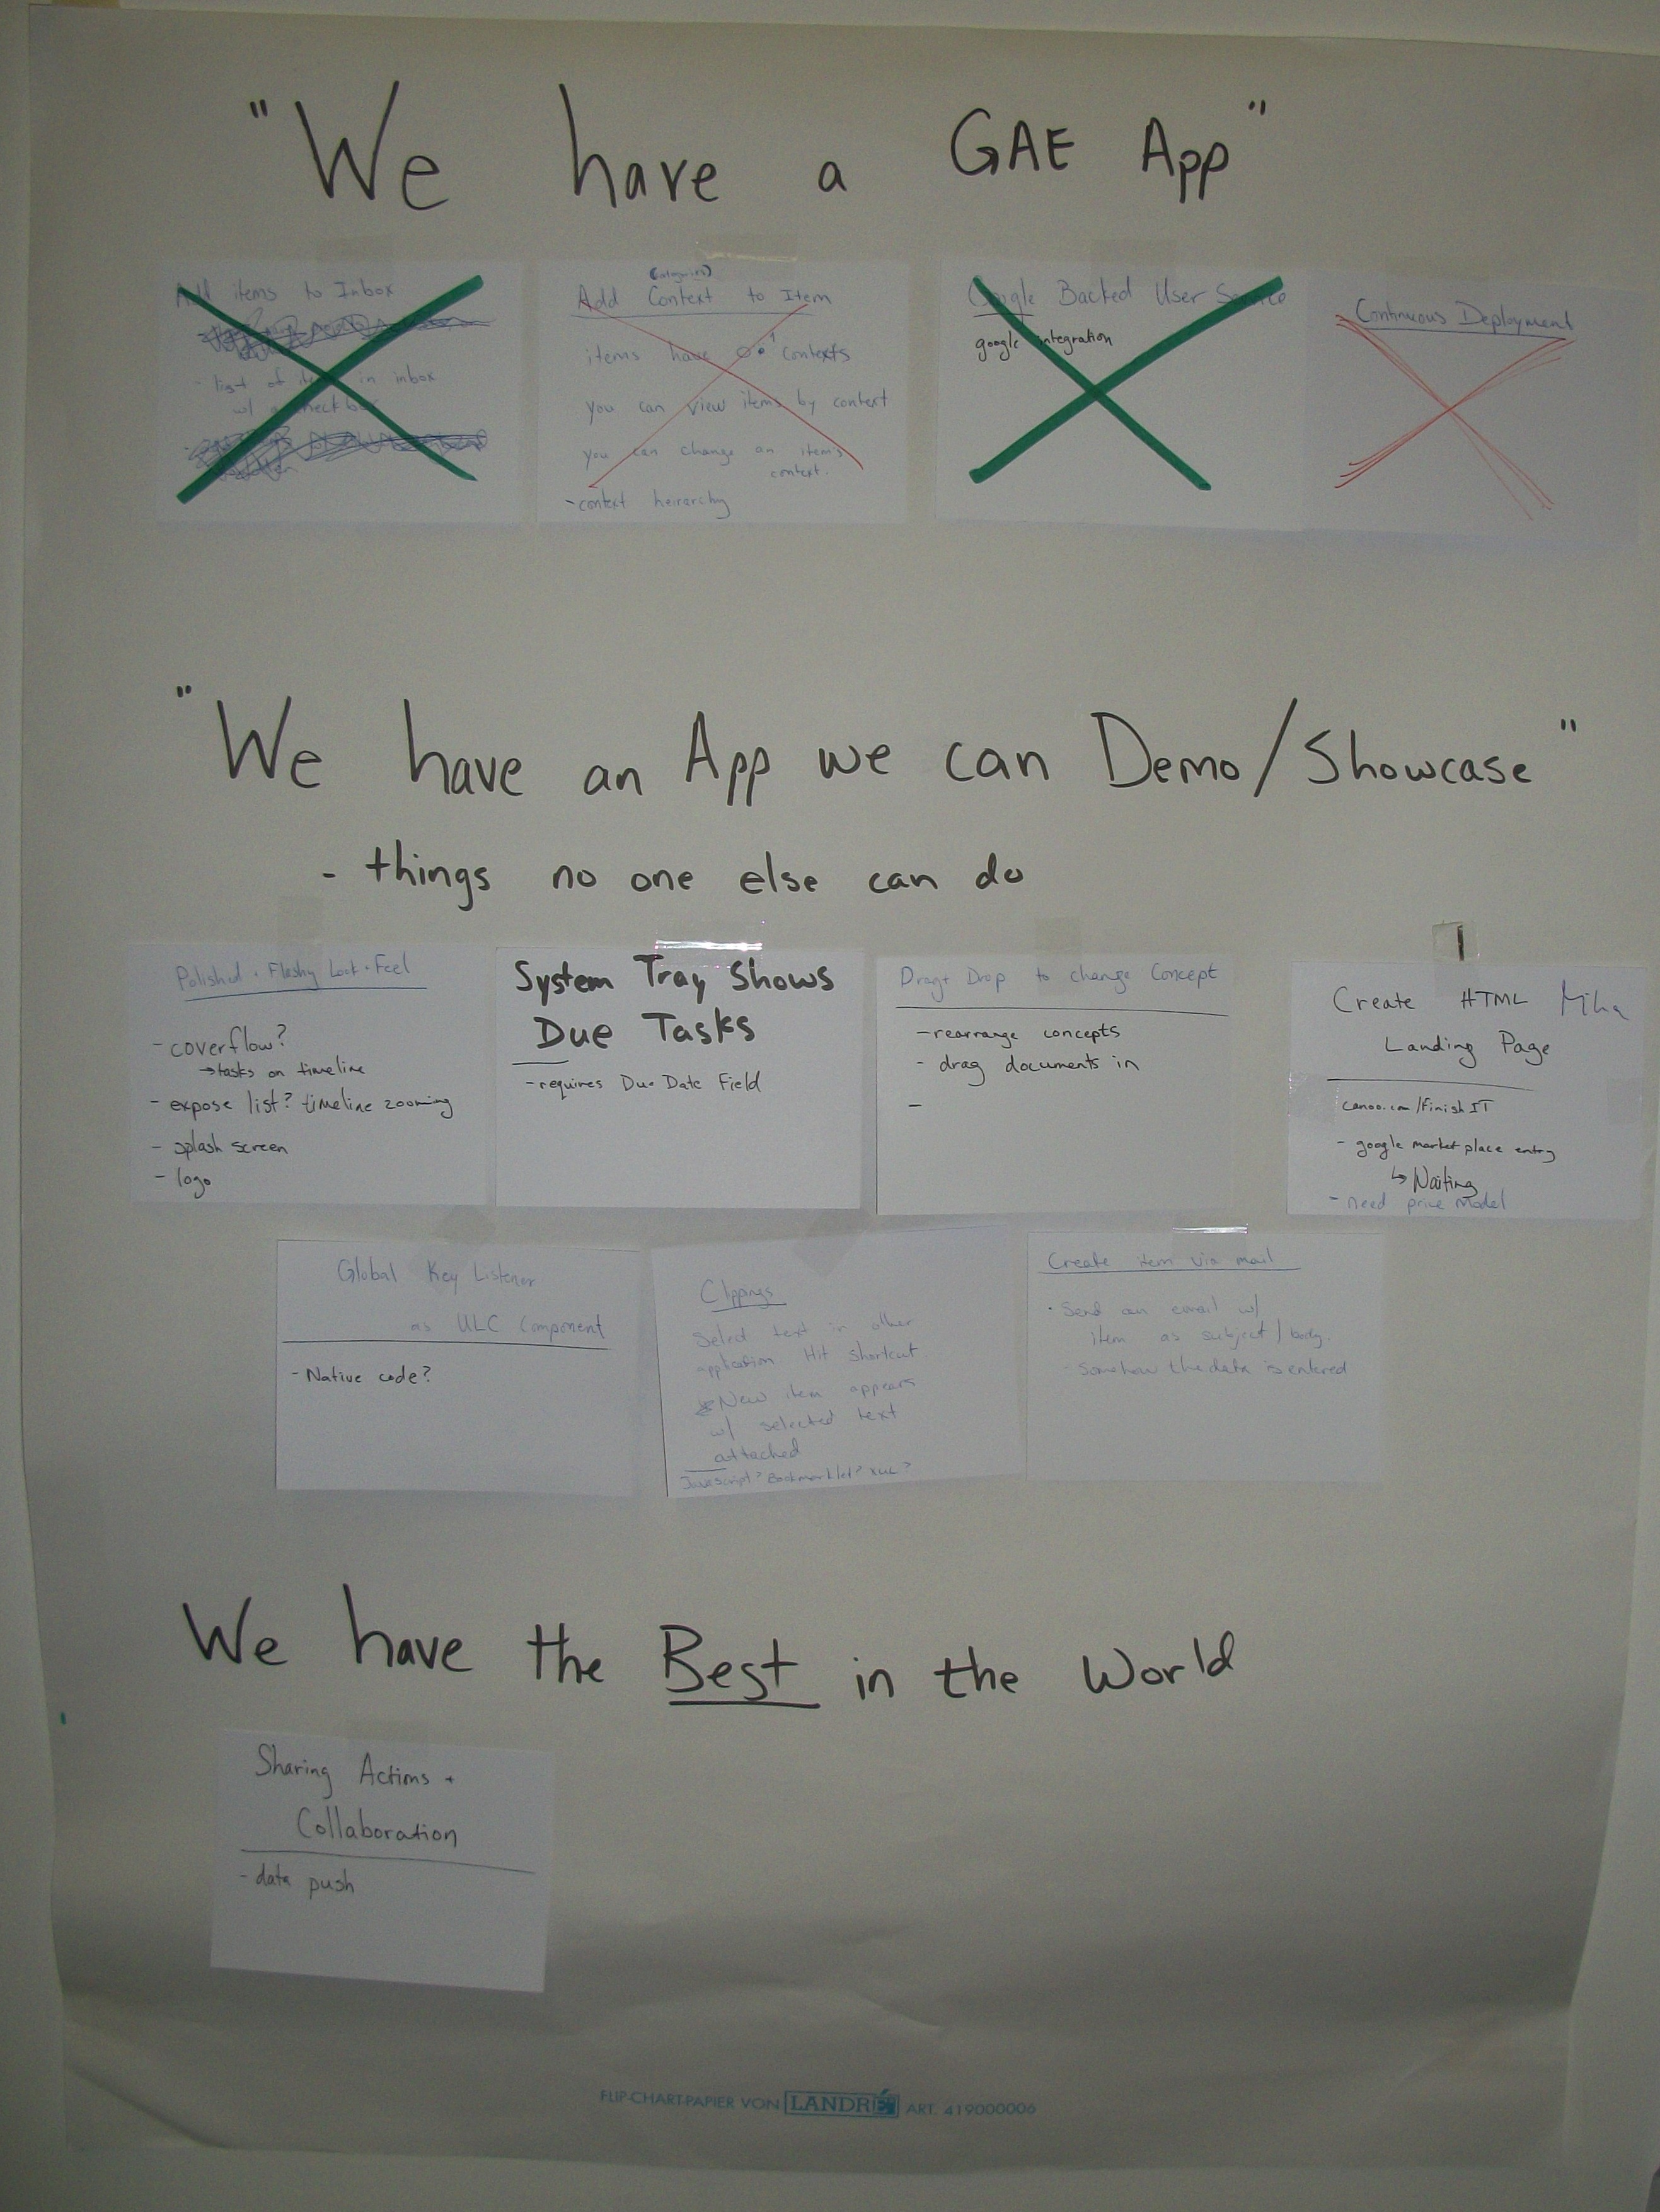 "We have a GAE App"
Add items to Inbox
- list of items in inbox
w/ a checkbox
(categories)
Add Context to Item
items have contexts
you can view items by context
you can change an item's
context.
- context heirarchy
Google Backed User Service
google integration
Continuous Deployment
"We have an App we can Demo/Showcase"
- things no one else can do
Polished + Flashy Look + Feel
- coverflow?
→ tasks on timeline
- expose list? timeline zooming
- splash screen
- logo
System Tray Shows
Due Tasks
- requires Due Date Field
Drag + Drop to change Concept
- rearrange concepts
- drag documents in
-
Create HTML
Landing Page
canoo.com/FinishIT
- google marketplace entry
↳ Waiting
- need price model
Global Key Listener
as ULC Component
- Native code?
Clippings
Select text in other
application. Hit shortcut
New item appears
w/ selected text
attached
Javascript? Bookmarklet? XUL?
Create item via mail
· Send an email w/
item as subject/body.
- Somehow the data is entered
We have the Best in the World
Sharing Actions +
Collaboration
- data push
FLIP-CHART-PAPIER VON LANDRÉ ART. 419000006